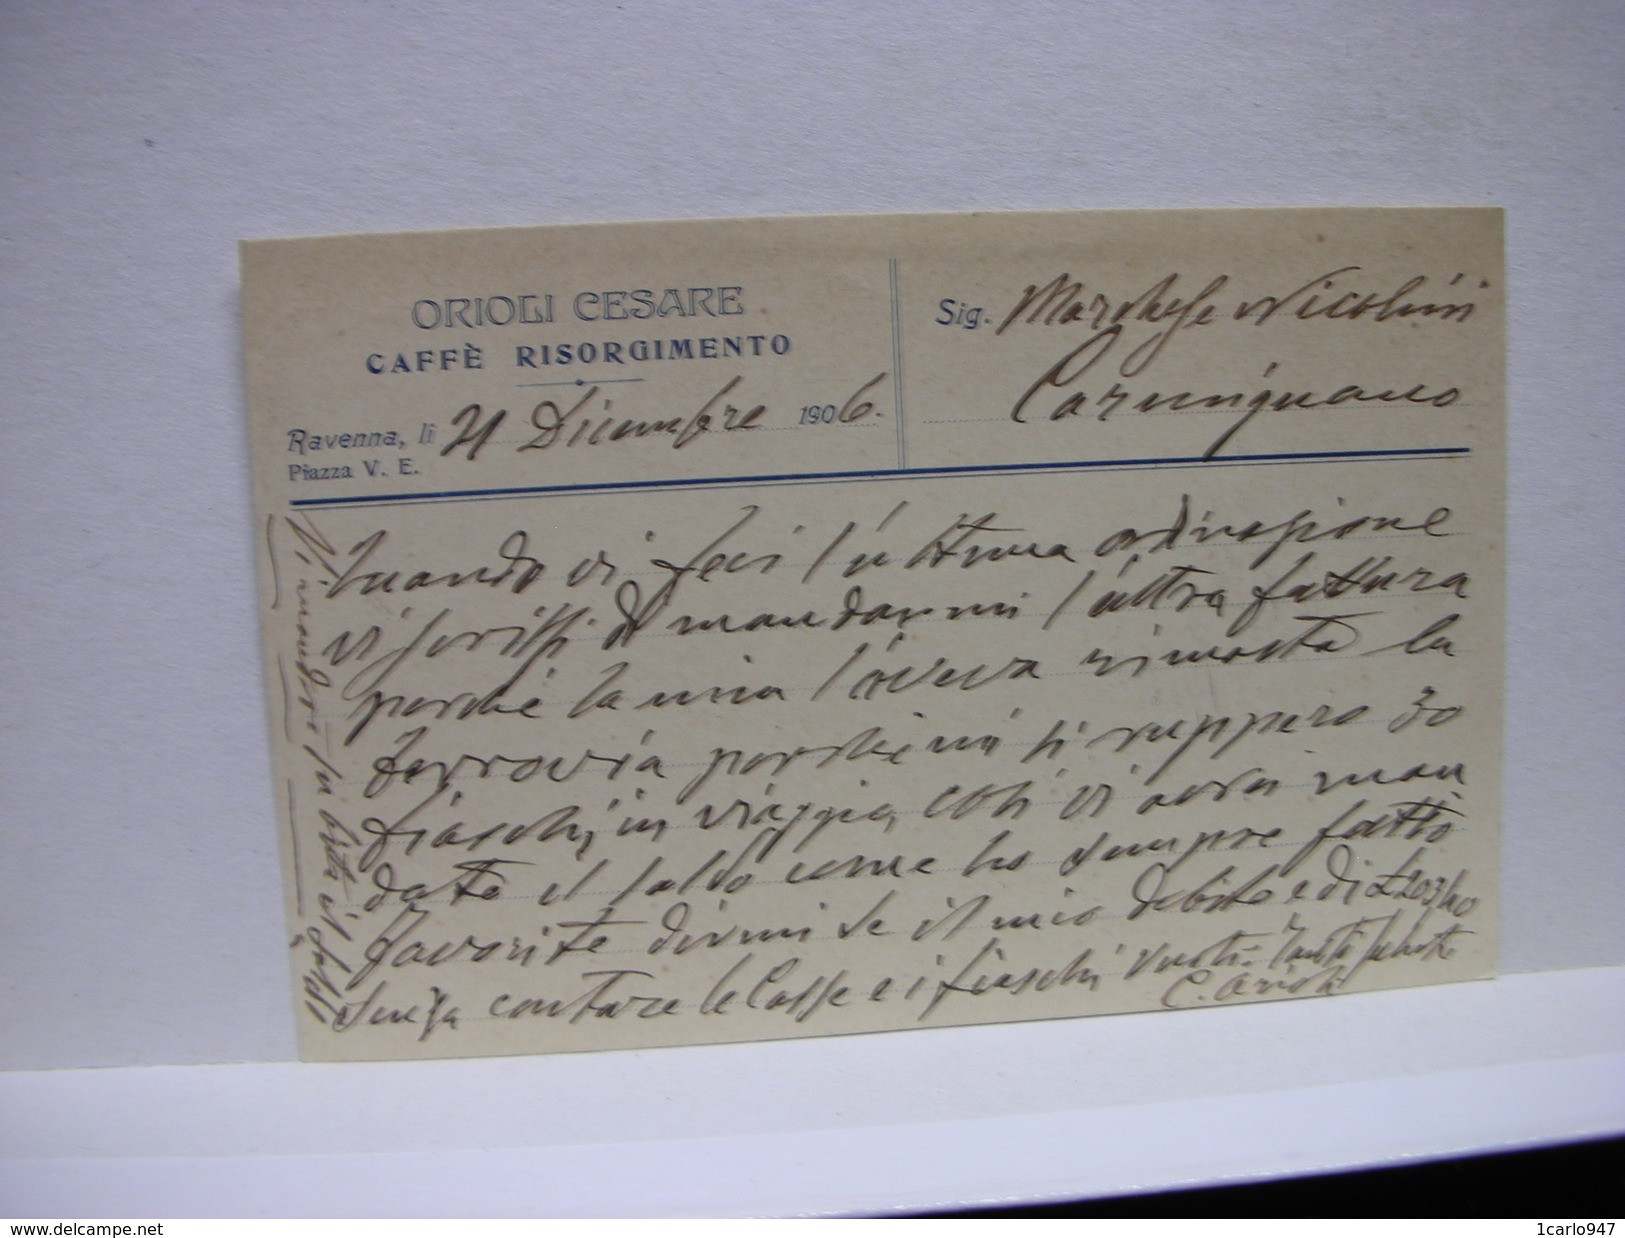 ORIOLI CESARE
CAFFÈ RISORGIMENTO
Ravenna, li 21 Dicembre 1906.
Piazza V. E.
Sig. Marchese Nicolini
Carmignano
Quando vi feci l'ultima ordinazione
vi scrissi di mandarmi l'altra fattura
perchè la mia l'aveva rimasta la
ferrovia perchè mi si ruppero 30
fiaschi in viaggio, così vi avrei man
dato il saldo come ho sempre fatto
Favorite dirmi se il mio debito e di £ 203,40
senza contare le Casse e i fiaschi vuoti. Tanti saluti
C. Orioli
Vi manderò subito il saldo
delcampe.net
1carlo947